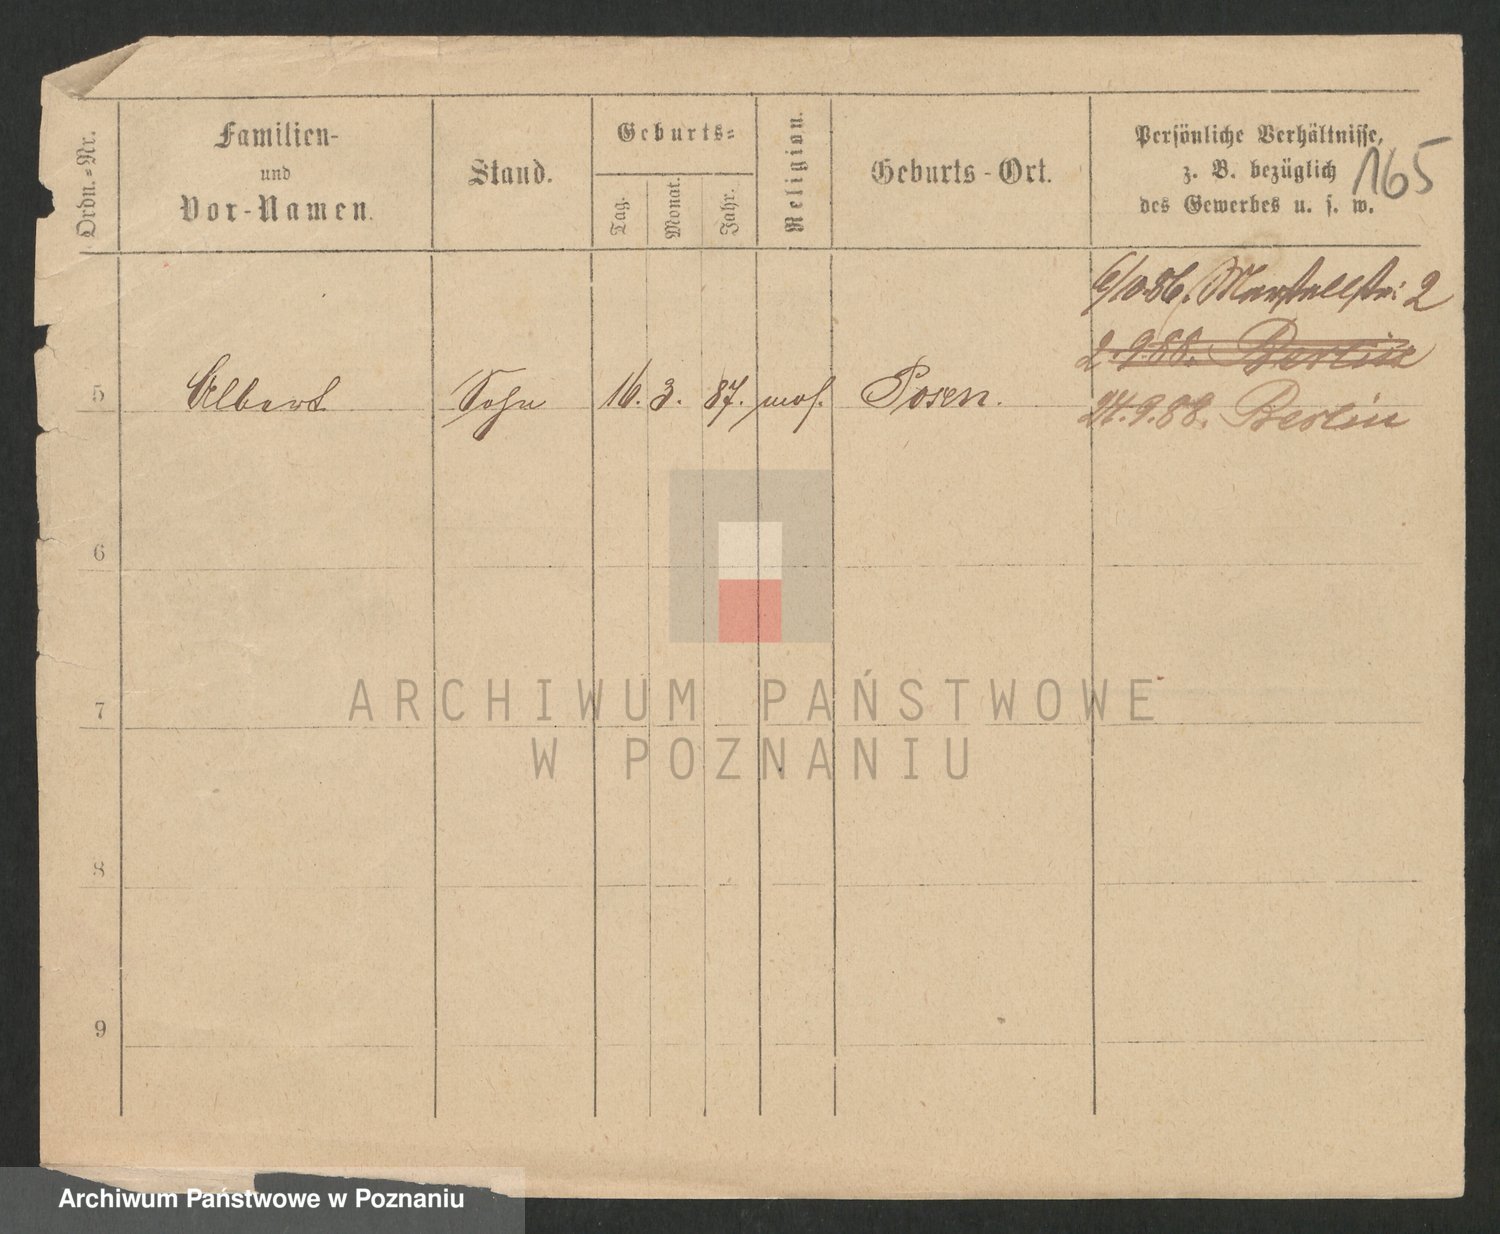 Ordn.-Nr.
Familien-
und
Vor-Namen.
Stand.
Geburts-
Tag.
Monat.
Jahr.
Religion.
Geburts-Ort.
Persönliche Verhältnisse,
z. B. bezüglich
des Gewerbes u. s. w.
165
6/10.86. Marstallstr. 2
2.9.88. Berlin
5 Albert Sohn 16. 3. 87. mos. Posen.
24.9.88. Berlin
6
7
8
9
ARCHIWUM PAŃSTWOWE
W POZNANIU
Archiwum Państwowe w Poznaniu